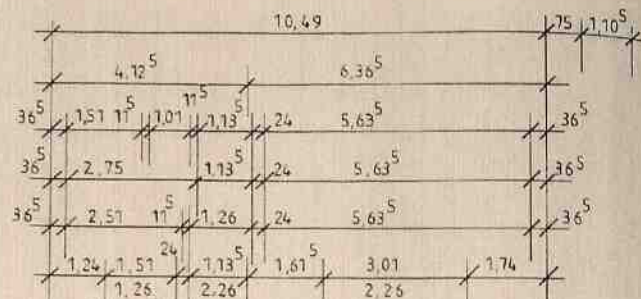 10,49 75 1,10⁵
4,12⁵ 6,36⁵
11⁵
36⁵ 1,51 11⁵ 1,01 1,13⁵ 24 5,63⁵ 36⁵
36⁵ 2,75 1,13⁵ 24 5,63⁵ 36⁵
36⁵ 2,51 11⁵ 1,26 24 5,63⁵ 36⁵
24
1,24 1,51 1,13⁵ 1,61⁵ 3,01 1,74
1,26 2,26 2,26